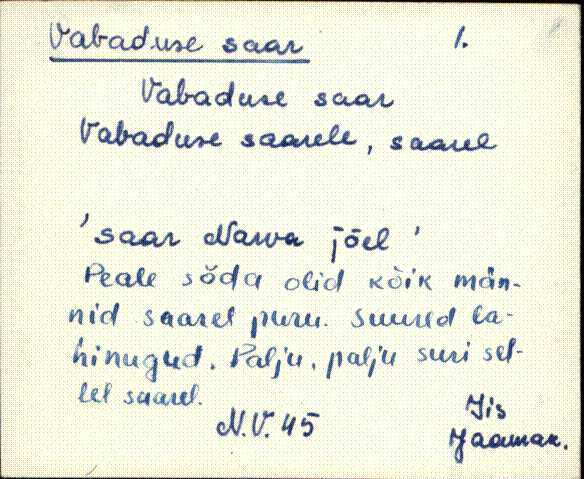 Vabaduse saar 1.
Vabaduse saar
Vabaduse saarele, saarel
'saar Narva jõel'
Peale sõda olid kõik män-
nid saarel puru. Suured la-
hinugud. Palju, palju suri sel-
lel saarel.
N.V. 45 Jis
Jaaman.